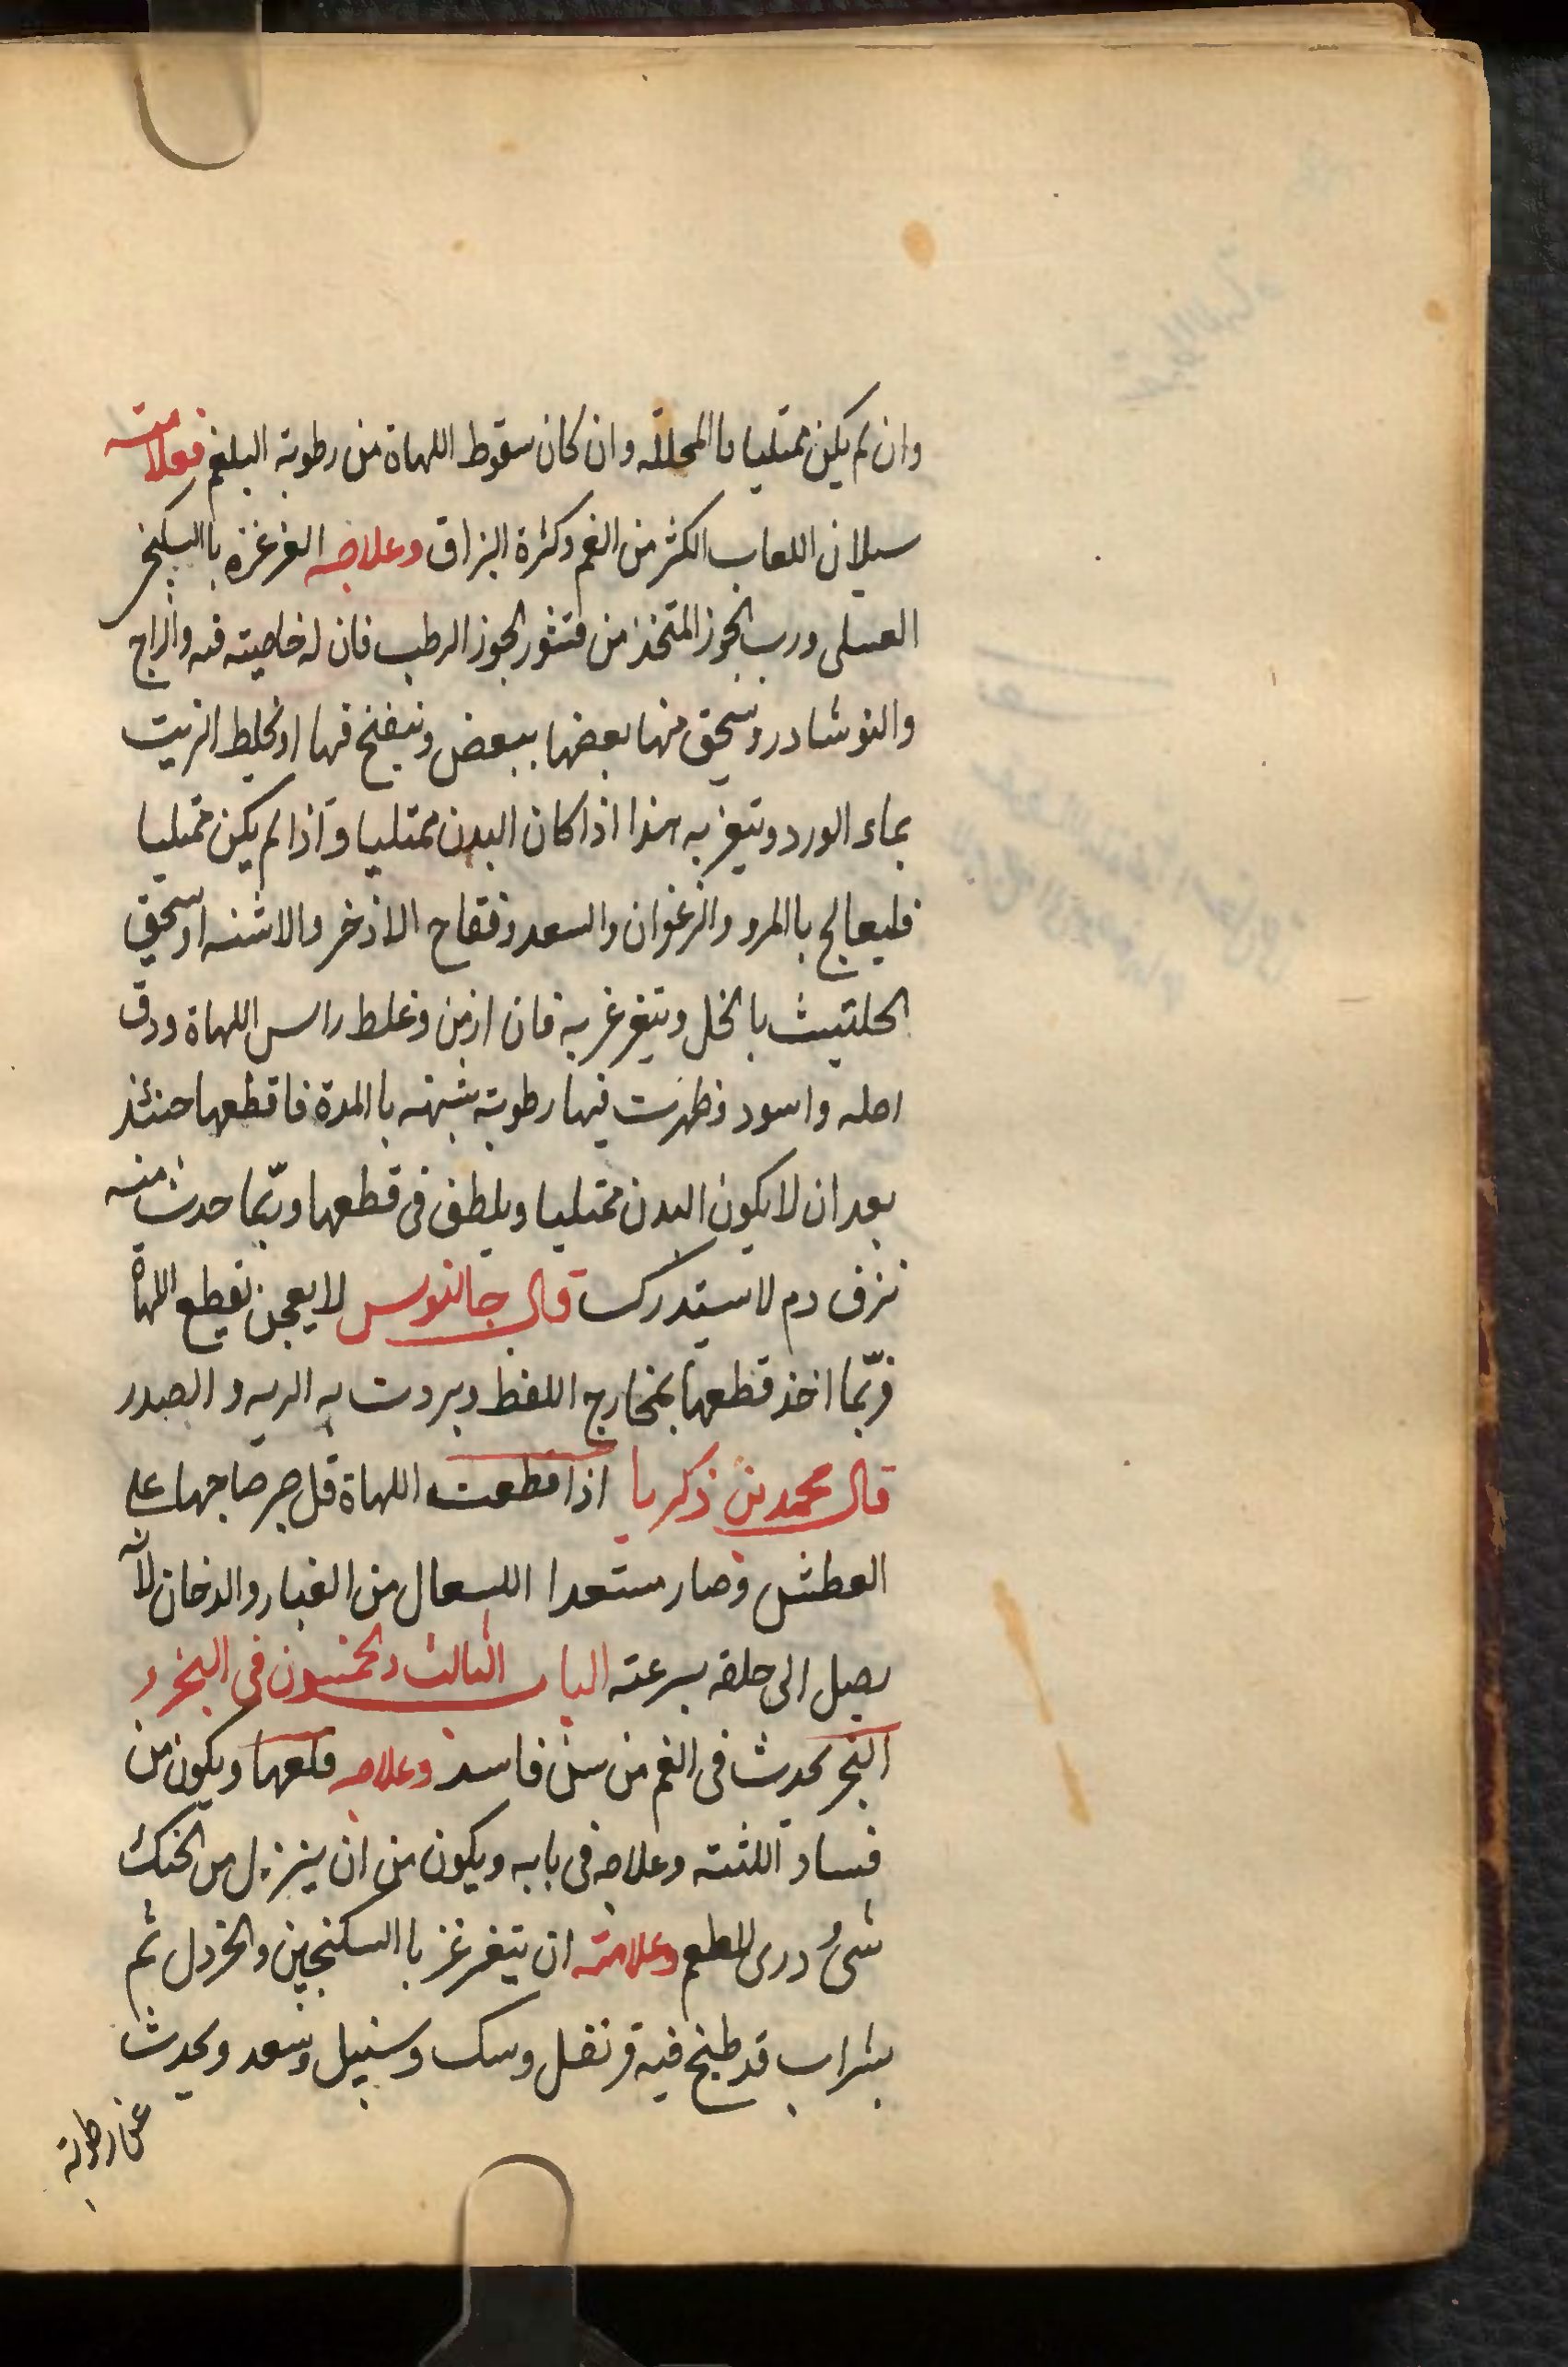 وان لم يكن ممتليا باالمحللة وان كان سقوط اللهاة من رطوبة البلغم فعلامته
سيلان اللعاب الكثر من الفم وكثرة البزاق وعلاجه الغرغره باالسكنج
العسلى ورب الجوز المتخذ من قشور الجوز الرطب فان له خاصيته فيه والزاج
والنوشادر وسحق منها بعضها ببعض وينفخ فيها او يخلط الزيت
بماء الورد ويتغرغر به هذا اذا كان البدن ممتليا واذا لم يكن ممتليا
فليعالج باالمرو والزعفران والسعد وفقاح الاذخر والاشنه او سحق
الحلتيث بالخل ويتغرغر به فان ازمن وغلظ راس اللهاة ودق
اصله واسود وظهرت فيها رطوبة شبيهه باالمدة فاقطعها حنئذ
بعد ان لا يكون البدن ممتليا ويلطف فى قطعها وربّما حدث منه
نزف دم لا ستدرك قال جالنوس لا يعجل بقطع اللهاة
فربّما اخذ قطعها بمخارج اللفظ وبردت به الريه والصدر
قال محمد بن ذكريا اذا قطعت اللهاة قل صبر صاحبها على
العطش وصار مستعدا اللسعال من الغبار والدخان لانّه
يصل الى حلقه بسرعته الباب الثالث والخمسون فى البخر و
البخر يحدث فى الفم من سن فاسد وعلاجه قلعها ويكون من
فساد اللثته وعلاجه فى بابه ويكون من ان ينزل من الحنك
شىءٌ ردى للطعم وعلامته ان يتغرغز باالسكنجبين والخردل ثم
بشراب قد طبخ فيه قرنفل وسك وسنبل وسعد ويحدث
عن رطوبة